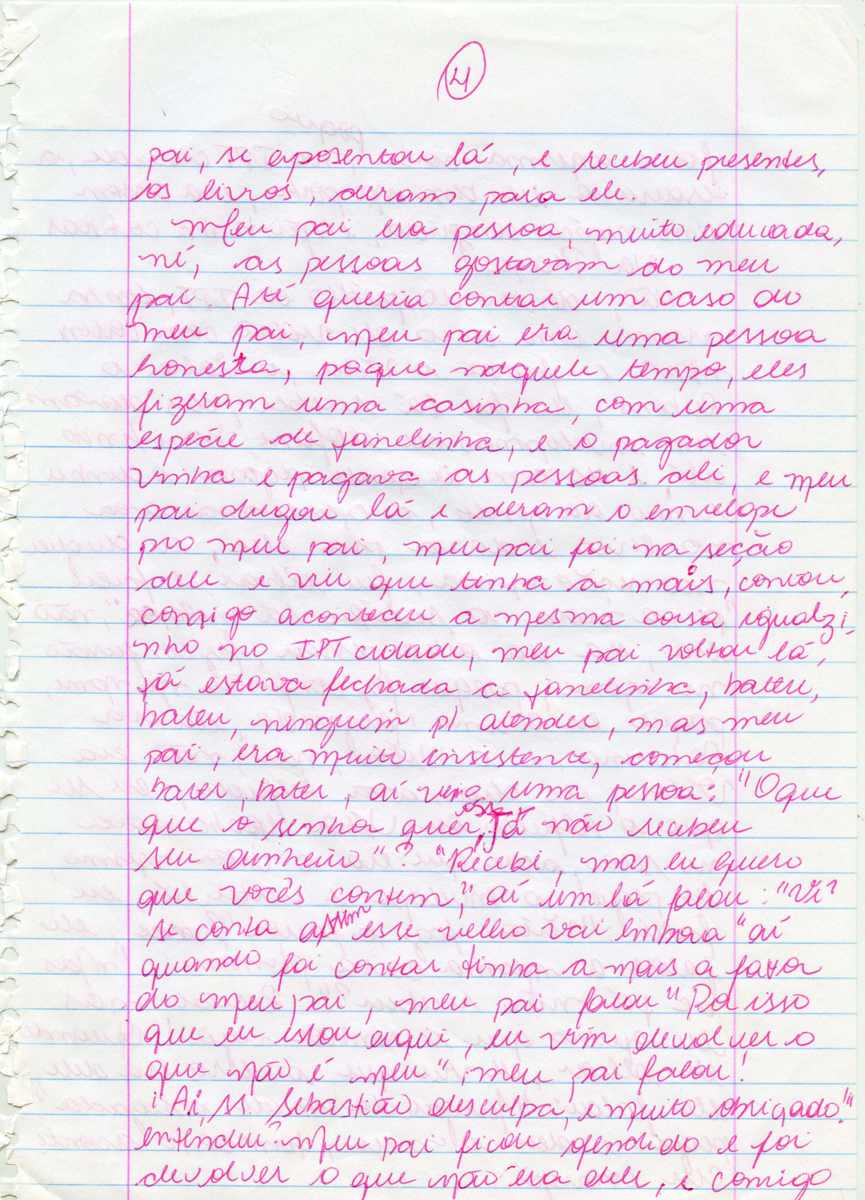 4
pai, se aposentou lá, e recebeu presentes,
os livros, deram para ele.
Meu pai era pessoa, muito educada,
né, as pessoas gostavam do meu
pai. Até queria contar um caso do
meu pai, meu pai era uma pessoa
honesta, poque naquele tempo, eles
fizeram uma casinha, com uma
espécie de janelinha, e o pagador
vinha e pagava as pessoas ali, e meu
pai chegou lá e deram o envelope
pro meu pai, meu pai foi na seção
dele e viu que tinha a mais, contou,
comigo aconteceu a mesma coisa igualzi
nho no IPT cidade, meu pai, voltou lá,
já estava fechada a janelinha, bateu,
bateu, ninguém p/ atender, mas meu
pai, era muito insistente, começou
bater, bater, aí veio uma pessoa: "O que
que o senhor quer, já não recebeu
seu dinheiro"? "Recebi, mas eu quero
que vocês contem," aí um lá falou: "Vê
se conta assim esse velho vai embora" aí
quando foi contar tinha a mais a favor
do meu pai, meu pai falou "Por isso
que eu estou aqui, eu vim devolver o
que não é meu", meu pai falou!
"Ai, sr. Sebastião desculpa, e muito obrigado!"
entendeu? Meu pai ficou ofendido e foi
devolver o que não era dele, e comigo